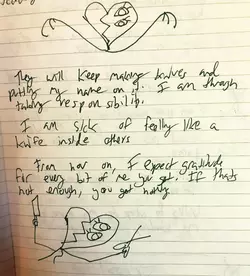 They will keep making knives and
putting my name on it. I am through
taking responsibility.
I am sick of feeling like a
knife inside others
from now on, I expect gratitude
for every bit of me you get. If thats
not enough, you get nothing